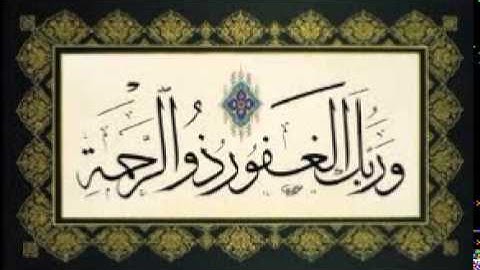 وربك الغفور ذو الرَّحمة